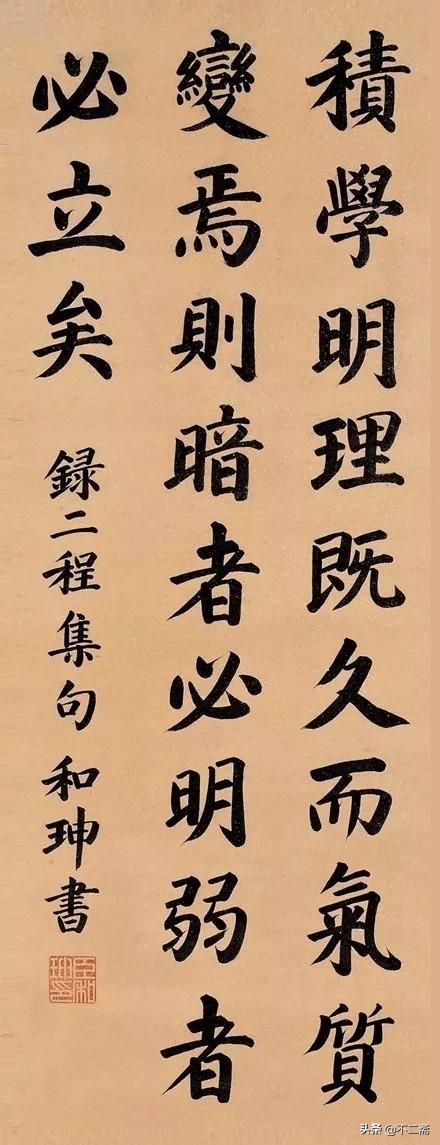 積學明理既久而氣質
變焉則暗者必明弱者
必立矣
録二程集句 和珅書
头条 @不二斋